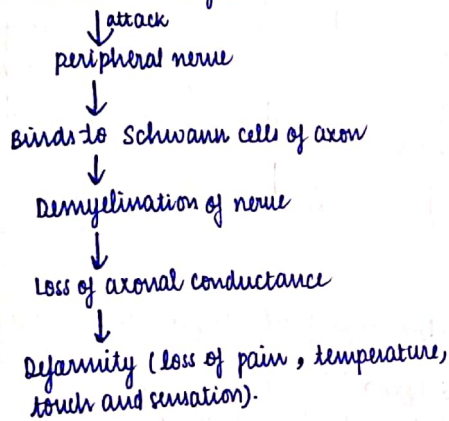 attack
peripheral nerve
Binds to Schwann cells of axon
Demyelination of nerve
Loss of axonal conductance
Deformity (loss of pain, temperature,
touch and sensation).